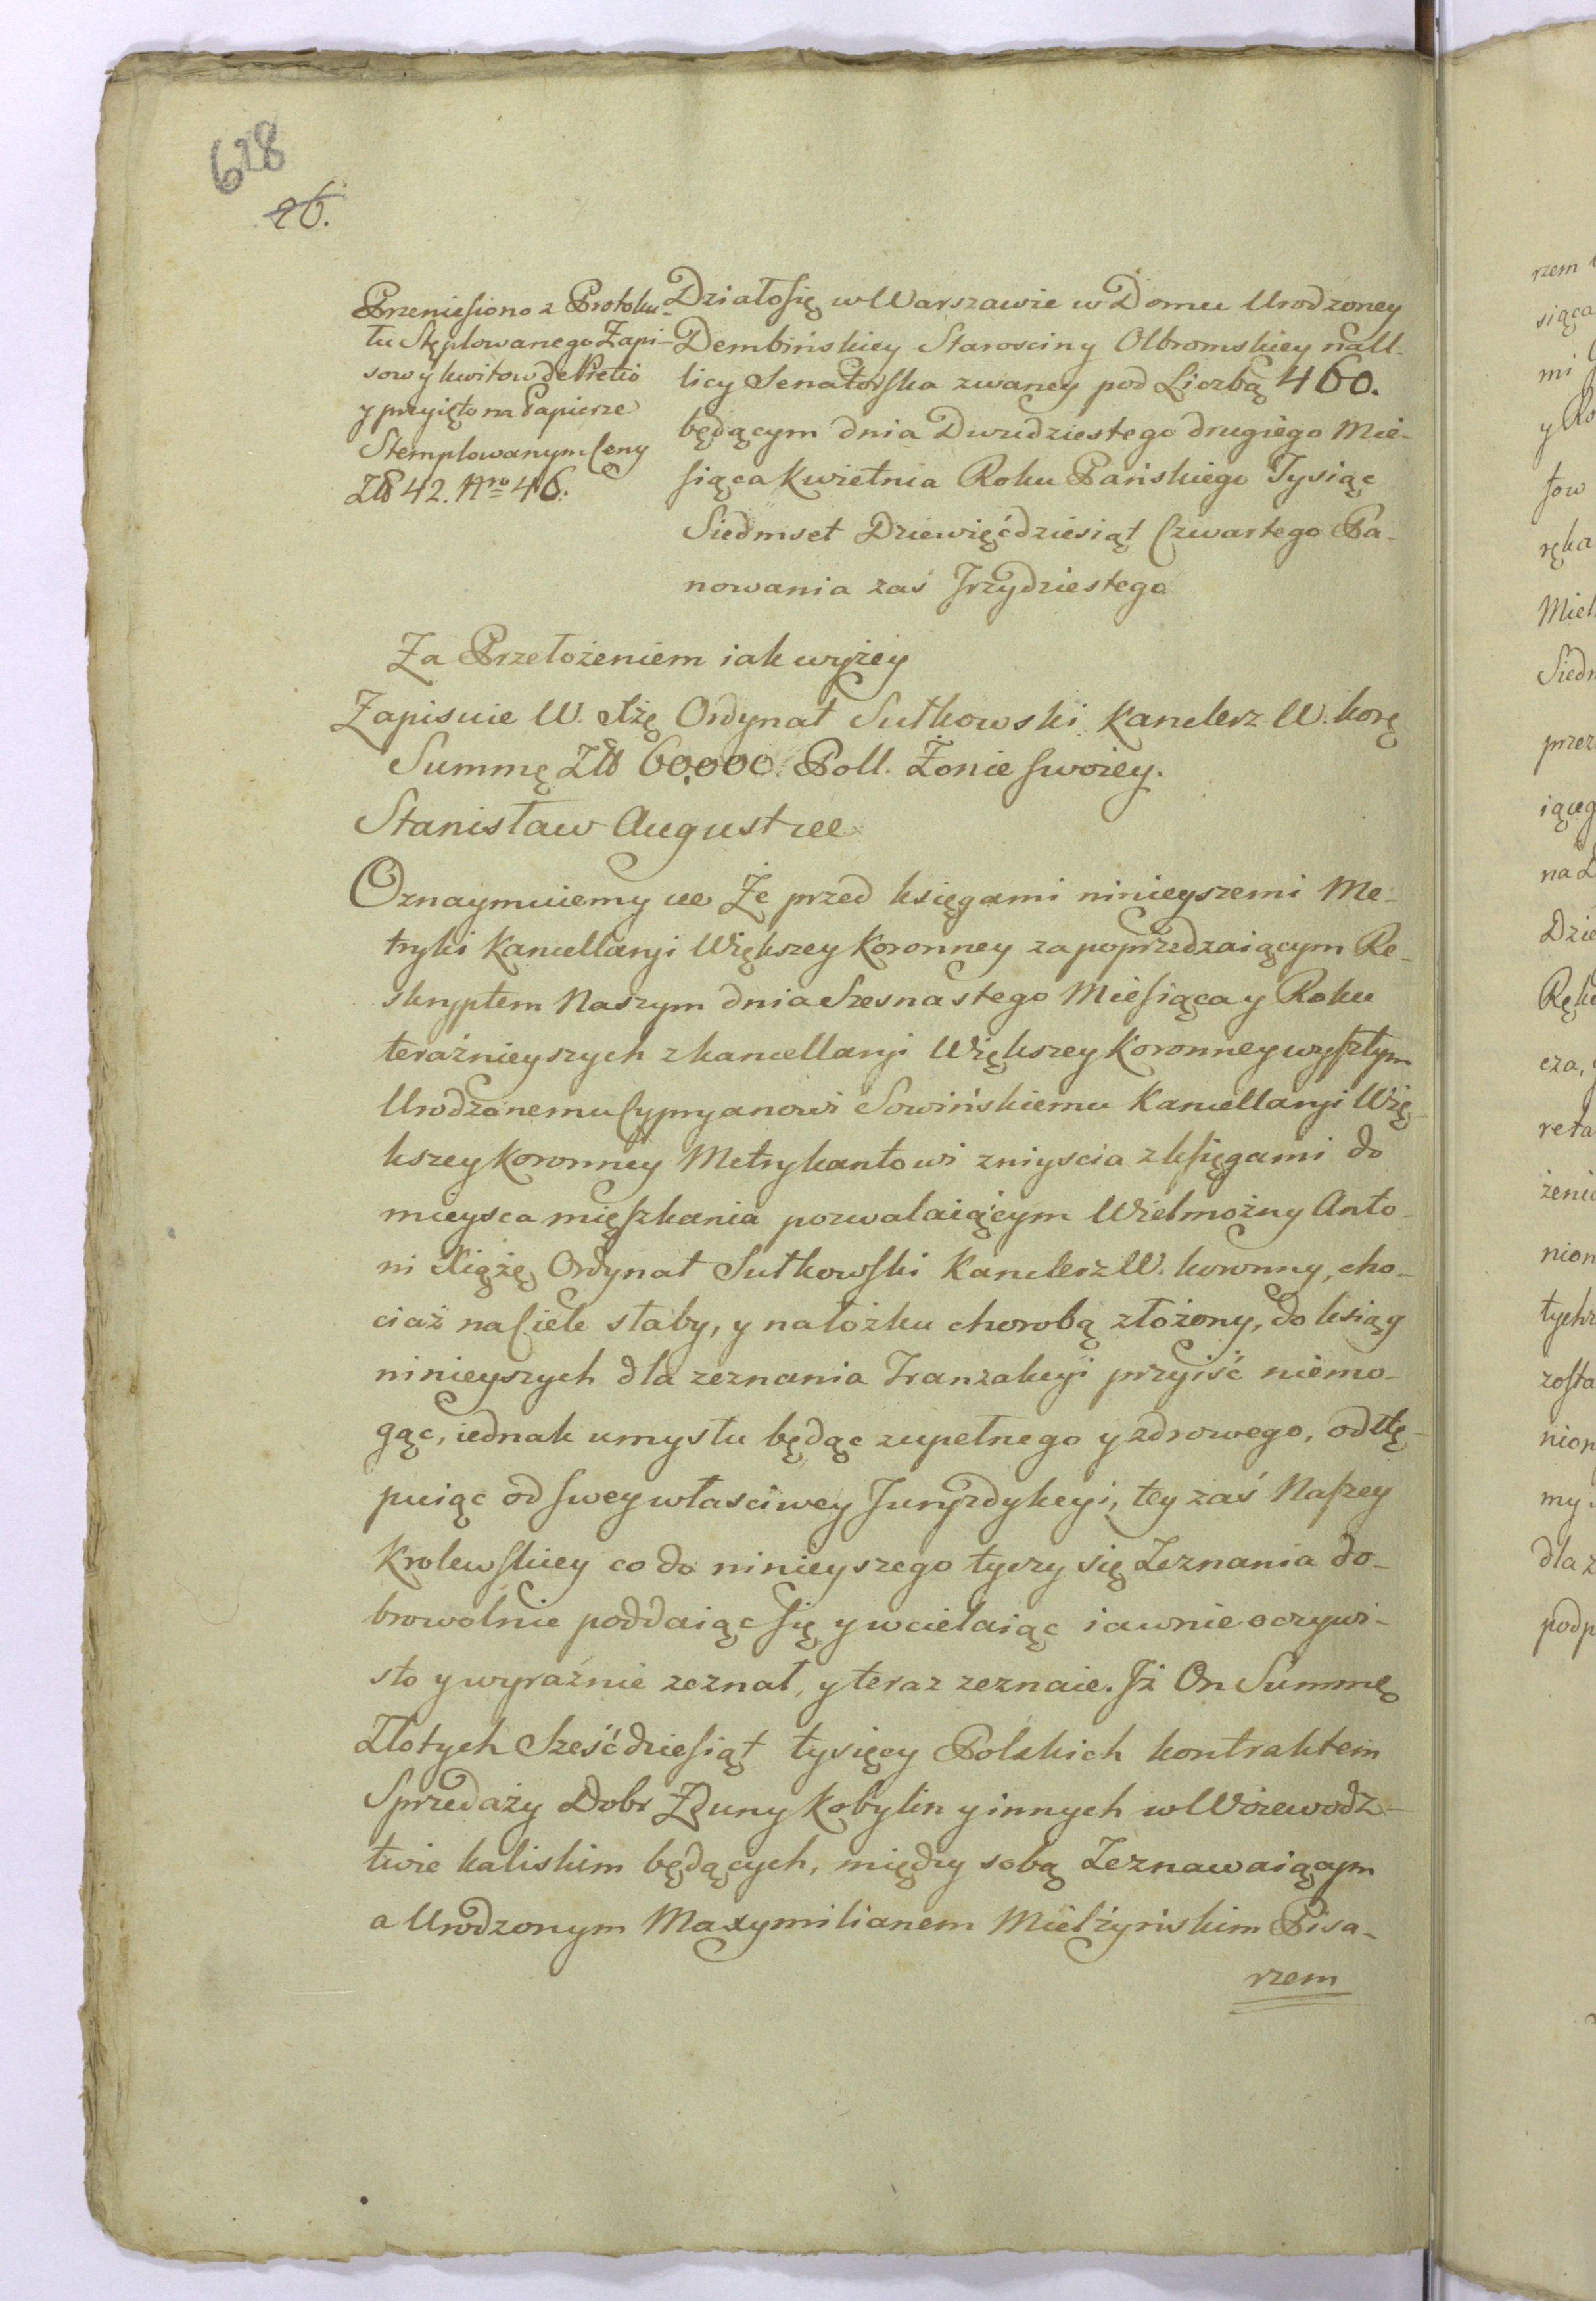 628
26.
Przeniesiono z Protoku-
łu Stęplowanego Zapi-
sow y kwitow de Pretio
y przyięto na Papierze
Stemplowanym Ceny
Zł 42. Nro 46.
Działo się w Warszawie w Domu Urodzoney
Dembińskiey Starosciny Olbromskiey na Ul-
licy Senatorska zwaney pod Liczbą 460.
będącym dnia Dwudziestego drugiego Mie-
siąca Kwietnia Roku Pańskiego Tysiąc
Siedmset Dziewięćdziesiąt Czwartego Pa-
nowania zaś Trzydziestego
Za Przełożeniem iak wyżey
Zapisuie W. Xżę Ordynat Sułkowski Kanclerz W. Korę
Summę Zł 60,000. Poll. Żonie swoiey.
Stanisław August ree
Oznaymuiemy ree Że przed księgami ninieyszemi Me-
tryki Kancellaryi Większey Koronney za poprzedzaiącym Re-
skryptem Naszym dnia Szesnastego Miesiąca y Roku
teraźnieyszych z Kancellaryi Większey Koronney wyszłym
Urodzonemu Cypryanowi Sowińskiemu Kancellaryi Wię-
kszey Koronney Metrykantowi zniyscia z księgami do
mieysca mięszkania pozwalaiącym Wielmożny Anto-
ni Xiążę Ordynat Sułkowski Kanclerz W. koronny, cho-
ciaż na Ciele słaby, y na łożku chorobą złożony, do ksiąg
ninieyszych dla zeznania Tranzakcyi przyiść niemo-
gąc, iednak umysłu będąc zupełnego y zdrowego, odstę-
puiąc od swey własciwey Juryzdykcyi, tey zaś Naszey
Krolewskiey co do ninieyszego tyczy się Zeznania do-
browolnie poddaiąc się y wcielaiąc iawnie oczywi-
sto y wyraźnie zeznał, y teraz zeznaie. Iż On Summę
Złotych Sześćdziesiąt tysięcy Polskich kontraktem
Sprzedaży Dobr Zduny Kobylin y innych w Woiewodz-
twie kaliskim będących, między sobą Zeznawaiącym
a Urodzonym Maxymilianem Mielżyńskim Pisa-
rzem